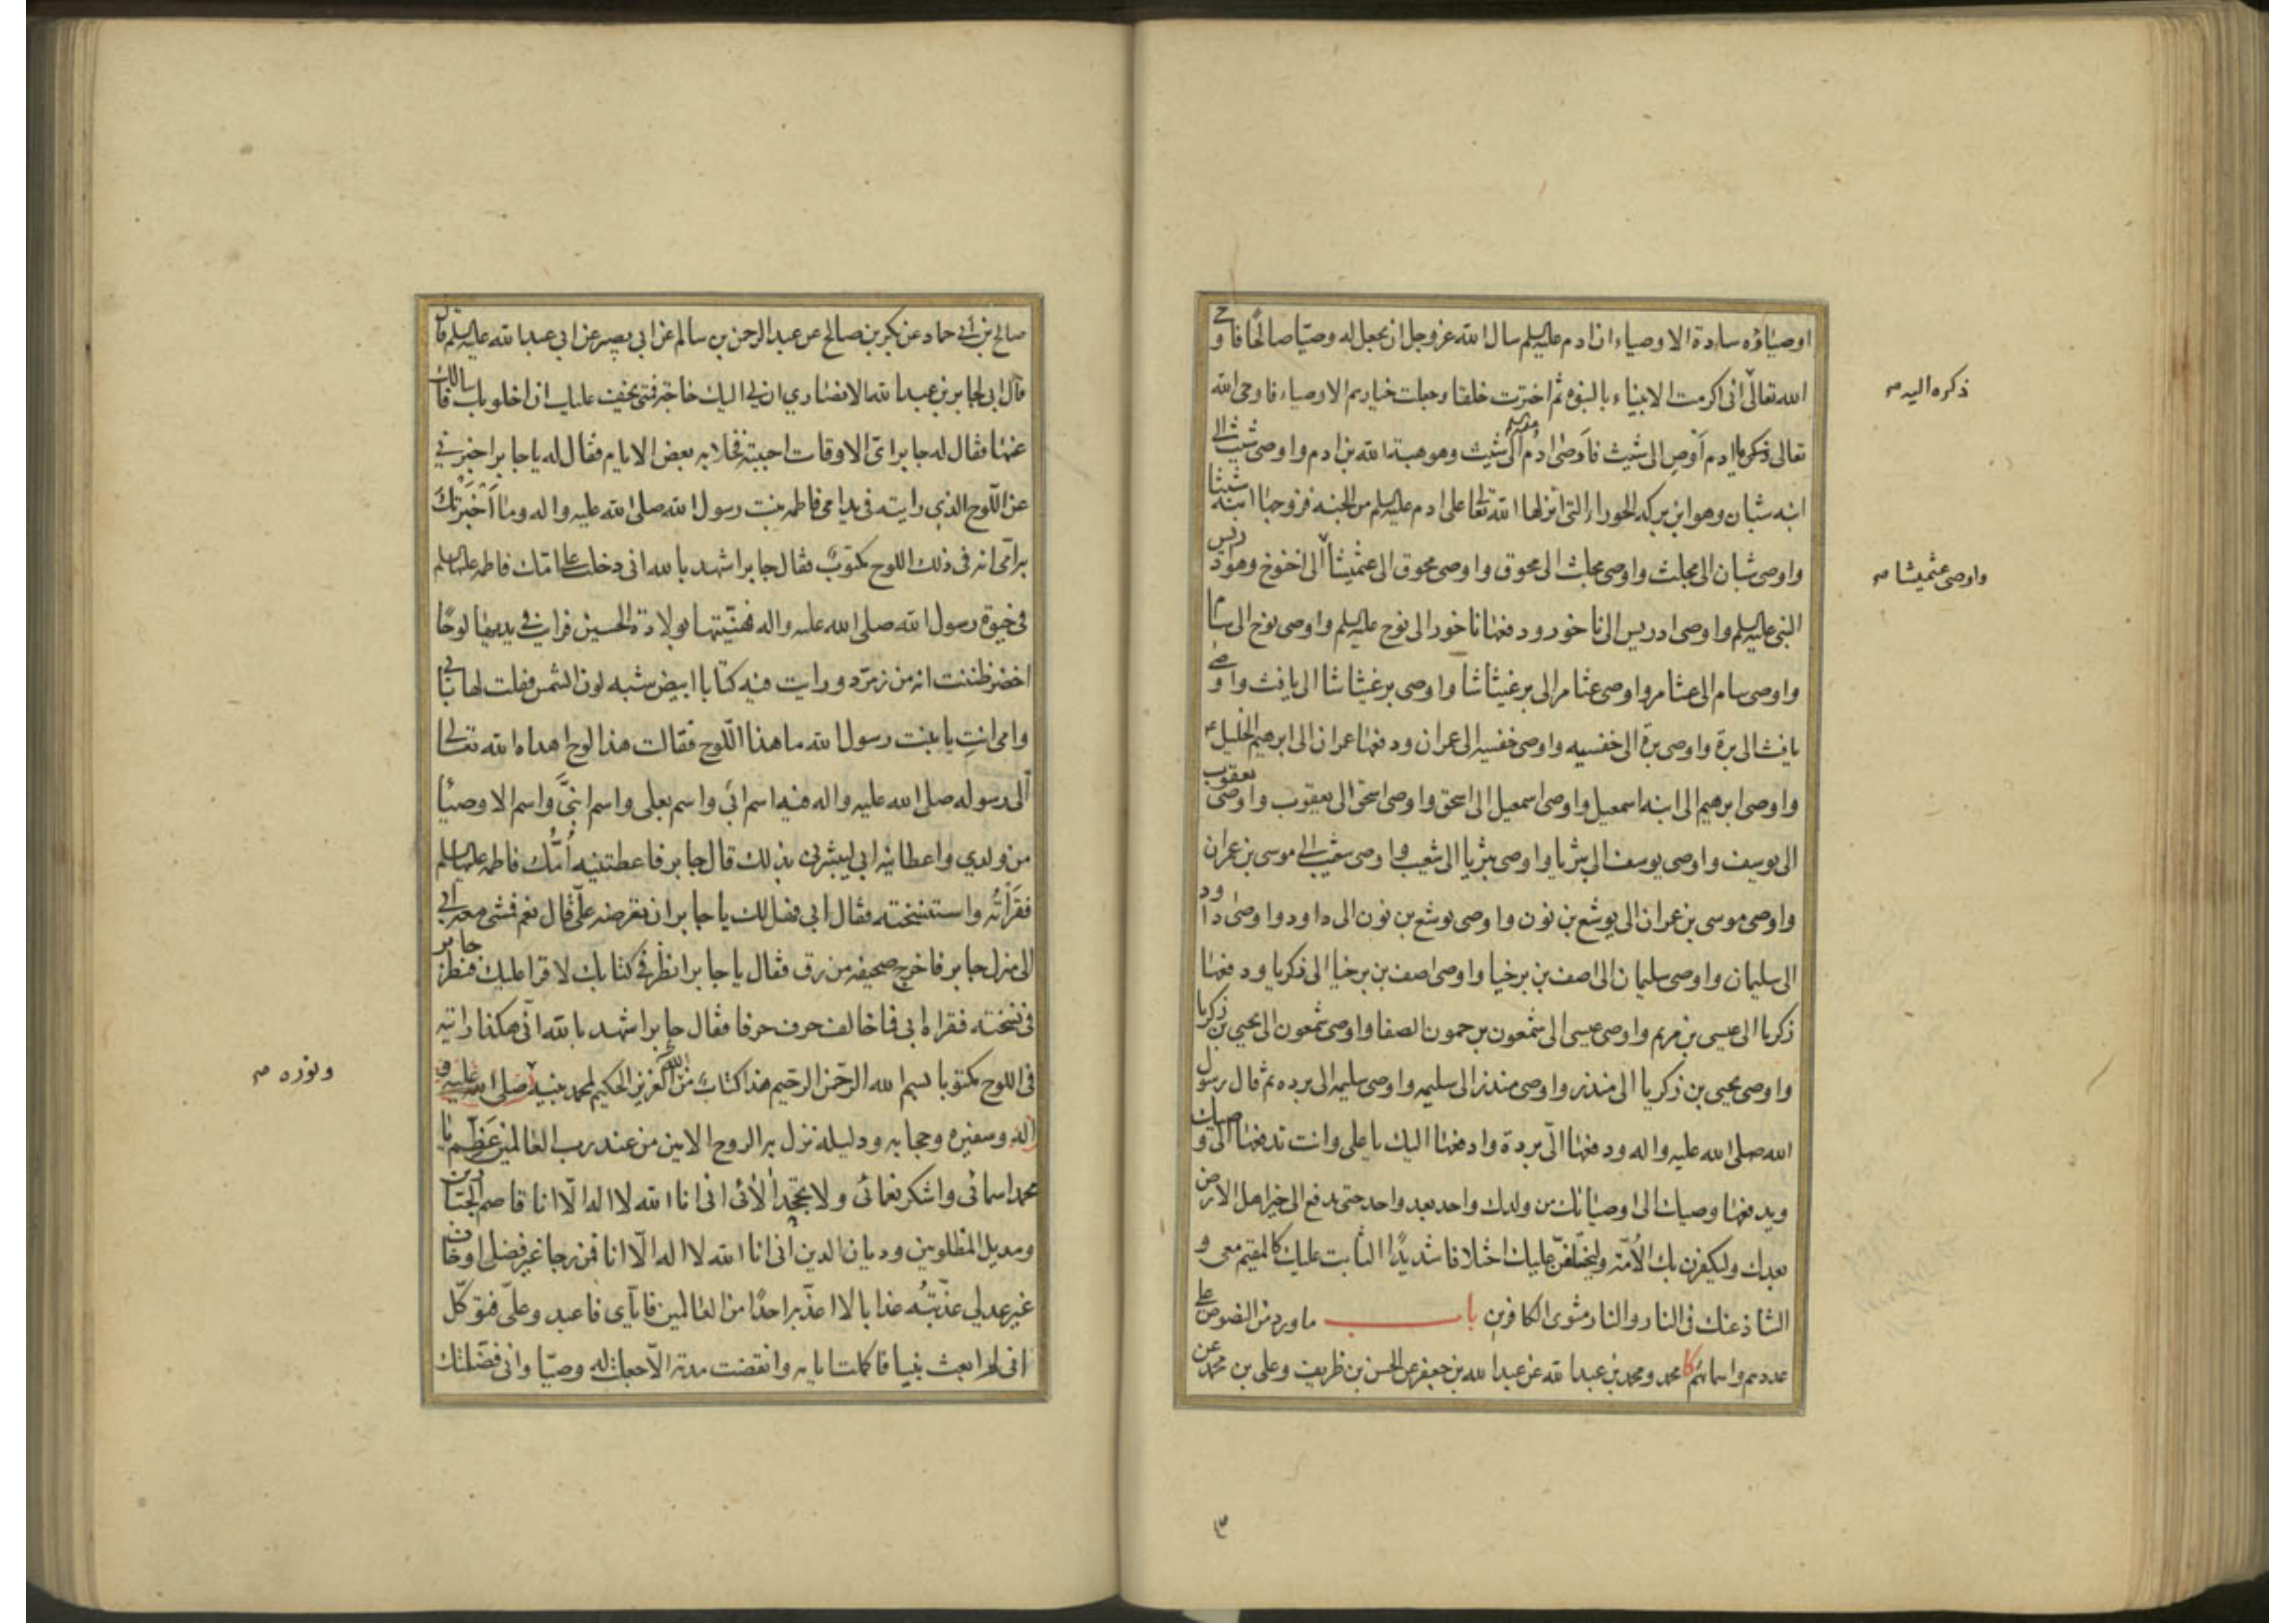 اوصياؤه سادة الاوصياء ان ادم عليه السلم سال الله عز وجل ان يجعل له وصيّا صالحًا فاوحى
الله تعالى انى اكرمت الانبياء بالنبوه ثم اخترت خلقا وجعلت خيارهم الاوصياء فاوحى الله
ذكره اليه صح
تعالى ذكره يا ادم اوص الى شيث فاوصى ادم الى شيث وهو هبة الله بن ادم واوصى شيث الى
ابنه شبان وهو ابن بركه الحوراء التى انزلها الله تعا على ادم عليه السلم من الجنه فزوجها ابنه شيثا
واوصى شبان الى مجلث واوصى مجلث الى محوق واوصى محوق الى عثميشا الى اخنوخ وهو ادريس
واوصى عثميشا صح
النبى عليه السلم واوصى ادريس الى ناخور ودفعها ناخور الى نوح عليه السلم واوصى نوح الى سام
واوصى سام الى عثامر واوصى عثامر الى برغيثاشا واوصى برغيثاشا الى يافث واوصى
يافث الى برة واوصى برة الى خفسيه واوصى خفسيه الى عمران ودفعها عمران الى ابرهيم الخليل ع
واوصى ابرهيم الى ابنه اسمعيل واوصى اسمعيل الى اسحق واوصى اسحق الى يعقوب واوصى يعقوب
الى يوسف واوصى يوسف الى بثريا واوصى بثريا الى شعيب واوصى شعيب الى موسى بن عمران
واوصى موسى بن عمران الى يوشع بن نون واوصى يوشع بن نون الى داود واوصى داود
الى سليمان واوصى سليمان الى اصف بن برخيا واوصى اصف بن برخيا الى ذكريا ودفعها
ذكريا الى عيسى بن مريم واوصى عيسى الى شمعون بن حمون الصفا واوصى شمعون الى يحيى بن ذكريا
واوصى يحيى بن ذكريا الى منذر واوصى منذر الى سليمه واوصى سليمه الى برده ثم قال رسول
الله صلى الله عليه واله ودفعها الىّ بردة وادفعها اليك يا على وانت تدفعها الى وصيك
ويدفعها وصيك الى اوصيائك من ولدك واحد بعد واحد حتى يدفع الى خير اهل الارض
بعدك وليكفرن بك الأمّة وليختلفنّ عليك اختلافا شديدًا الثابت عليك كالمقيم معى و
الشاذ عنك فى النار والنار مثوى الكافرين باب ما ورد من النصوص على
عددهم واسمائهم كا محمد ومحمد بن عبدالله عن عبدالله بن جعفر عن الحسن بن ظريف وعلى بن محمد عن
٣
صالح بن ابي حماد عن بكر بن صالح عن عبدالرحمن بن سالم عن ابى بصير عن ابى عبدالله عليه السلم قال
قال ابى لجابر بن عبدالله الانصاري ان لى اليك حاجة فمتى يخف عليك ان اخلو بك فاسالك
عنها فقال له جابر اىّ الاوقات احببته فخلا به بعض الايام فقال له يا جابر اخبرنى
عن اللّوح الذى رايته فى يد امى فاطمه بنت رسول الله صلى الله عليه واله وما اَخْبَرَتْكَ
به امّى انه فى ذلك اللوح مكتوب فقال جابر اشهد بالله انى دخلت على امّك فاطمه عليها السلم
فى حيوة رسول الله صلى الله عليه واله فهنّيتها بولادة الحسين فرايت فى يديها لوحًا
اخضر ظننت انه من زمرّد ورايت فيه كتابا ابيض شبه لون الشمس فقلت لها بابى
وامى انتِ يا بنت رسول الله ما هذا اللّوح فقالت هذا لوح اهداه الله تعالى
الى رسوله صلى الله عليه واله فيه اسم ابى واسم بعلى واسم ابنىَّ واسم الاوصيا
من ولدي واعطانيه ابى ليبشرنى بذلك قال جابر فاعطتنيه أُمُّك فاطمه عليها السلم
فقَرَأتُه واستنسخته فقال ابى فهل لك يا جابر ان تعرضه علىّ قال نعم فمشى معه ابى
الى منزل جابر فاخرج صحيفه من رق فقال يا جابر انظر فى كتابك لاقرا عليك فنظر جابر
فى نسخته فقراه ابى فما خالف حرف حرفا فقال جابر اشهد بالله انّى هكذا رايته
فى اللوح مكتوبا بسم الله الرحمن الرحيم هذا كتاب من الله العزيز الحكيم لمحمد نبيه صلى الله عليه و
ونوره صح
اله وسفيره وحجابه ودليله نزل به الروح الامين من عند رب العالمين عَظِّم يا
محمد اسمائى واشكر نعمائى ولا تجحد الائى انى انا الله لا اله الّا انا قاصم الجبّارين
ومديل المظلومين وديان الدين انى انا الله لا اله الّا انا فمن رجا غير فضلى او خاف
غير عدلي عذّبتُه عذابا لا اعذّبه احدًا من العالمين فايّاى فاعبد وعلىّ فتوكّل
انى لم ابعث نبيا فاكملت ايامه وانقضت مدته الّا جعلت له وصيّا وانى فضّلتك